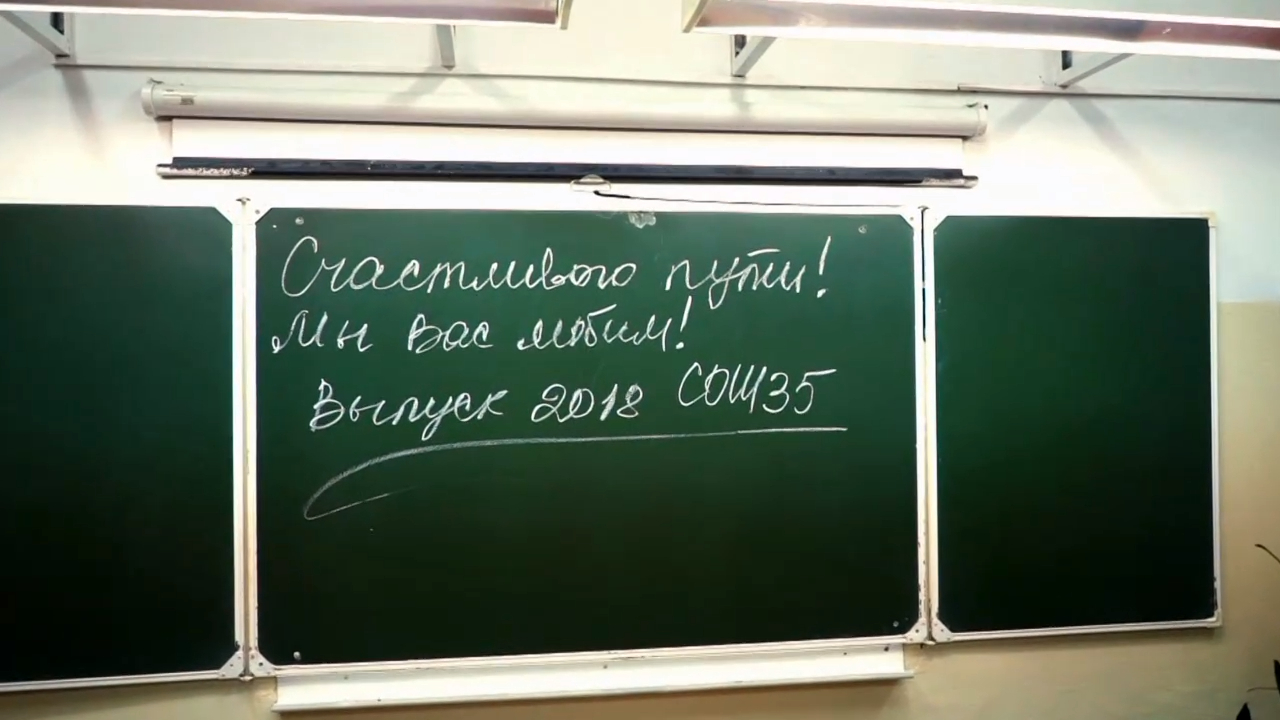 Счастливого пути!
Мы вас любим!
Выпуск 2018 СОШ35